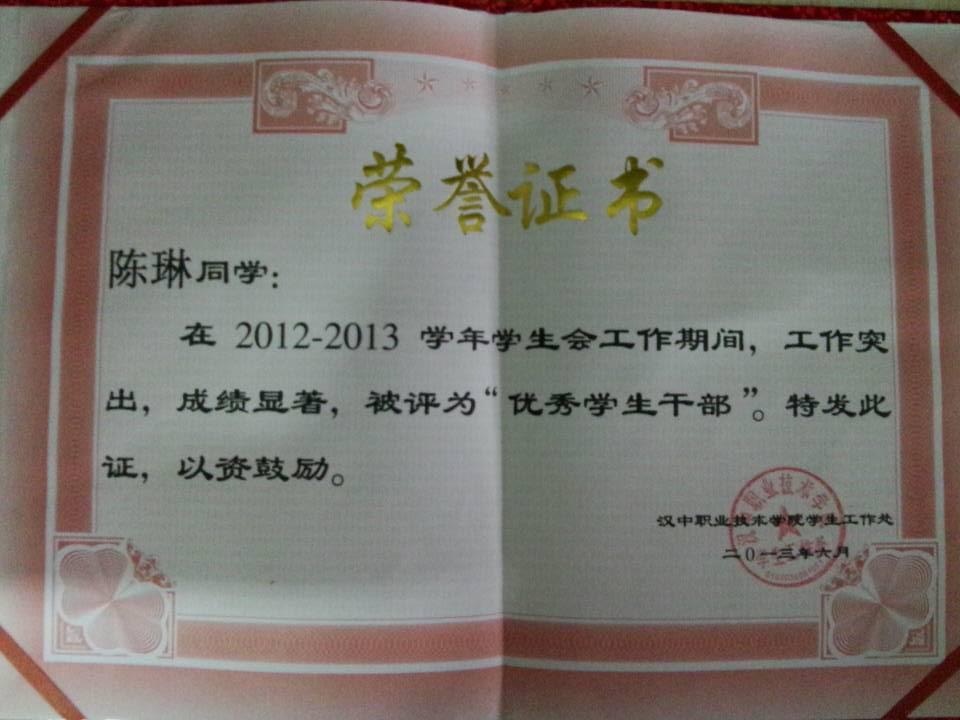 荣誉证书
陈琳同学：
在 2012-2013 学年学生会工作期间，工作突
出，成绩显著，被评为“优秀学生干部”。特发此
证，以资鼓励。
汉中职业技术学院学生工作处
二0一三年六月